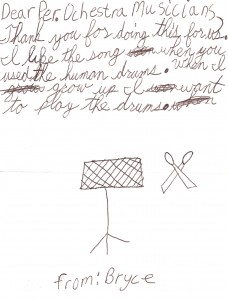 Dear Per. Ochestra Musicians,
Thank you for doing this for us.
I like the song when you
used the human drums. When I
grow up I want
to play the drums.
from: Bryce